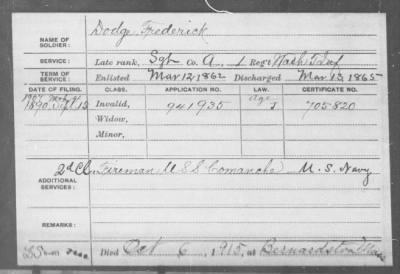 Dodge, Frederick
NAME OF SOLDIER:
SERVICE: Late rank, Sgt Co. A, 1 Reg't Wash T Inf
TERM OF SERVICE: Enlisted Mar 12, 1862 Discharged Mar 13, 1865
DATE OF FILING. CLASS. APPLICATION NO. LAW. CERTIFICATE NO.
1890 Sept 15 Invalid, 941935 Age 705820
Widow,
Minor,
2d Cl. Fireman U S S Comanche U. S. Navy
ADDITIONAL SERVICES:
REMARKS:
Died Oct 6, 1915, at Bernardston Mass